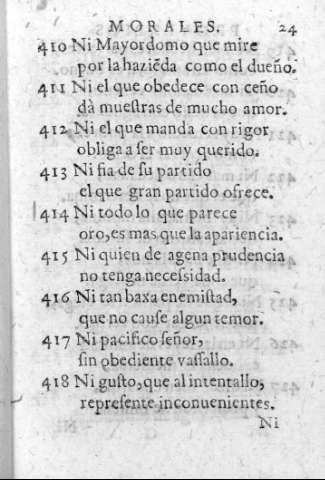 MORALES. 24
410 Ni Mayordomo que mire
por la haziẽda como el dueño.
411 Ni el que obedece con ceño
dà mueſtras de mucho amor.
412 Ni el que manda con rigor
obliga a ſer muy querido.
413 Ni fia de ſu partido
el que gran partido ofrece.
414 Ni todo lo que parece
oro, es mas que la apariencia.
415 Ni quien de agena prudencia
no tenga neceſsidad.
416 Ni tan baxa enemiſtad,
que no cauſe algun temor.
417 Ni pacifico ſeñor,
ſin obediente vaſſallo.
418 Ni guſto, que al intentallo,
repreſente inconuenientes.
Ni